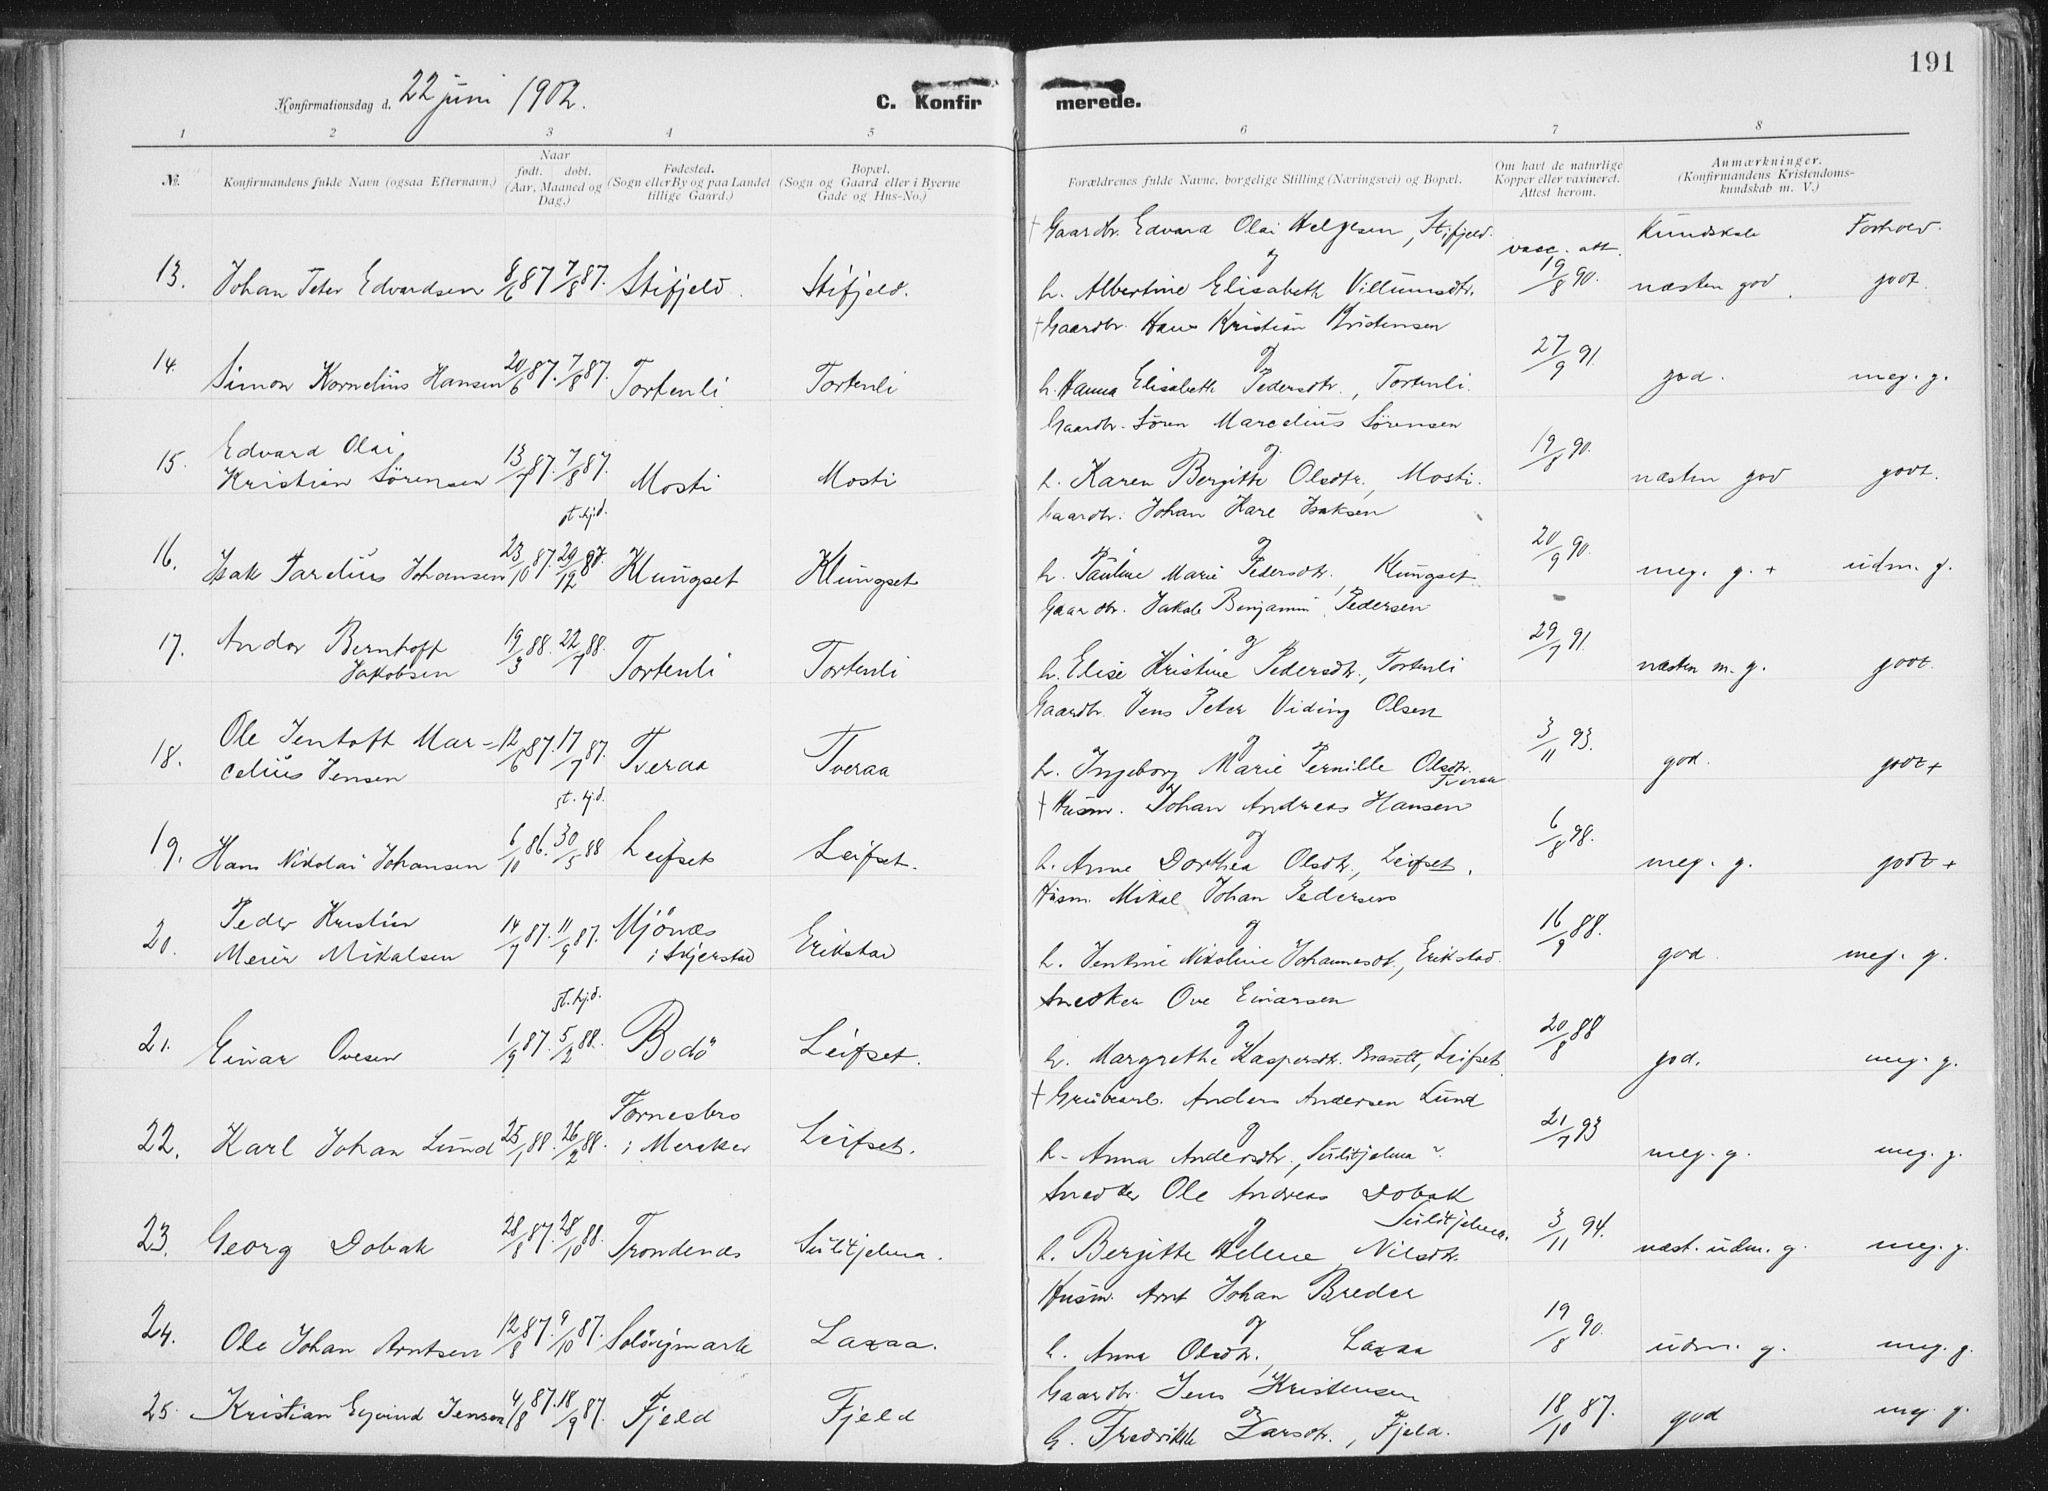 191
Konfirmationsdag d. 22 juni 1902.
C. Konfirmerede.
1 2 3 4 5 6 7 8
№
Konfirmandens fulde Navn (ogsaa Efternavn.)
Naar
født. døbt.
(Aar, Maaned og
Dag.)
Fødested.
(Sogn eller By og paa Landet
tillige Gaard.)
Bopæl.
(Sogn og Gaard eller i Byerne
Gade og Hus-No.)
Forældrenes fulde Navne, borgelige Stilling (Næringsvei) og Bopæl.
Om havt de naturlige
Kopper eller vaxineret.
Attest herom.
Anmærkninger.
(Konfirmandens Kristendoms-
kundskab m. V.)
† Gaardbr. Edvard Olai Helgesen, Stifjeld. vacc. att. Kundskab Forhold.
og
13. Johan Peter Edvardsen 8/6 87. 7/8 87. Stifjeld. Stifjeld. h. Albertine Elisabeth Villumsdtr. 19/8 90. næsten god. godt.
† Gaardbr. Hans Kristian Kristensen
og
14. Simon Kornelius Hansen 20/6 87. 7/8 87. Tortenli Tortenli h. Hanna Elisabeth Pedersdtr., Tortenli. 27/9 91. god. meg. g.
Gaardbr. Søren Marcelius Sørensen
og
15. Edvard Olai
Kristian Sørensen 13/7 87. 7/8 87. Mosti Mosti h. Karen Bergitte Olsdtr., Mosti. 19/8 90. næsten god godt.
Gaardbr. Johan Karl Isaksen
st. hjd. og
16. Isak Parelius Johansen 23/10 87. 29/12 87. Klungset Klungset h. Pauline Marie Pedersdtr., Klungset 20/9 90. meg. g. + udm. g.
Gaardbr. Jakob Benjamin Pedersen
og
17. Andor Berntoft
Jakobsen 19/3 88. 22/7 88. Tortenli Tortenli h. Elise Kristine Pedersdtr., Tortenli 29/7 91. næsten m. g. godt.
Gaardbr. Jens Peter Viding Olsen
og
18. Ole Jentoft Mar-
celius Jensen 12/6 87. 17/7 87. Tveraa Tveraa h. Ingeborg Marie Pernille Olsdtr. Tveraa 3/11 93. god. godt +
† Husm. Johan Andreas Hansen
st. hjd. og
19. Hans Nikolai Johansen 6/10 86. 30/5 88 Leifset Leifset. h. Anne Dorthea Olsdtr., Leifset. 6/8 98. meg. g. godt +
Husm. Mikal Johan Pedersen
og
20. Peder Kristian
Meier Mikalsen 14/7 87. 11/9 87. Mjönes
i Skjerstad Erikstad h. Jentine Nikoline Johannesdt., Erikstad. 16/9 88. god. meg. g.
Snedker Ove Einarsen
st. hjd. og
21. Einar Ovesen 1/9 87. 5/2 88. Bodö Leifset. h. Margrethe Kaspersdtr., Leifset 20/8 88 god. meg. g.
† Grubearb. Anders Andersen Lund
og
22. Karl Johan Lund 25/1 88. 26/2 88. i Meraker Leifset. h. Anna Andersdtr., Sulitjelma 21/7 93 meg. g. meg. g.
Snedker Ole Andreas Dobak
og Sulitjelma.
23. Georg Dobak 28/8 87. 28/10 88. Trondenes Sulitjelma. h. Bergitte Helene Nilsdtr. 3/11 94. næst. udm. g. meg. g.
Husm. Arnt Johan Breder
og
24. Ole Johan Arntsen 12/8 87. 9/10 87. Solövigmark Laxaa. h. Anna Olsdtr., Laxaa 19/8 90. udm. g. meg. g.
Gaardbr. Jens Kristensen
og
25. Kristian Eyvind Jensen 4/8 87. 18/9 87. Fjeld Fjeld h. Fredrikke Larsdtr., Fjeld. 18/10 87. god meg. g.